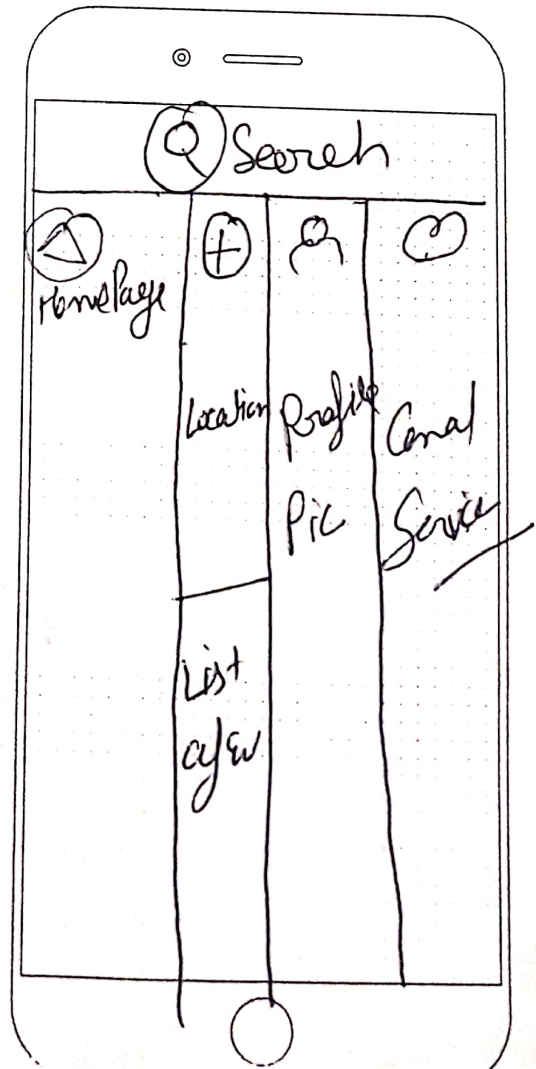 Search
HomePage
Location
Profile
Pic
Canal
Service
List
of EV